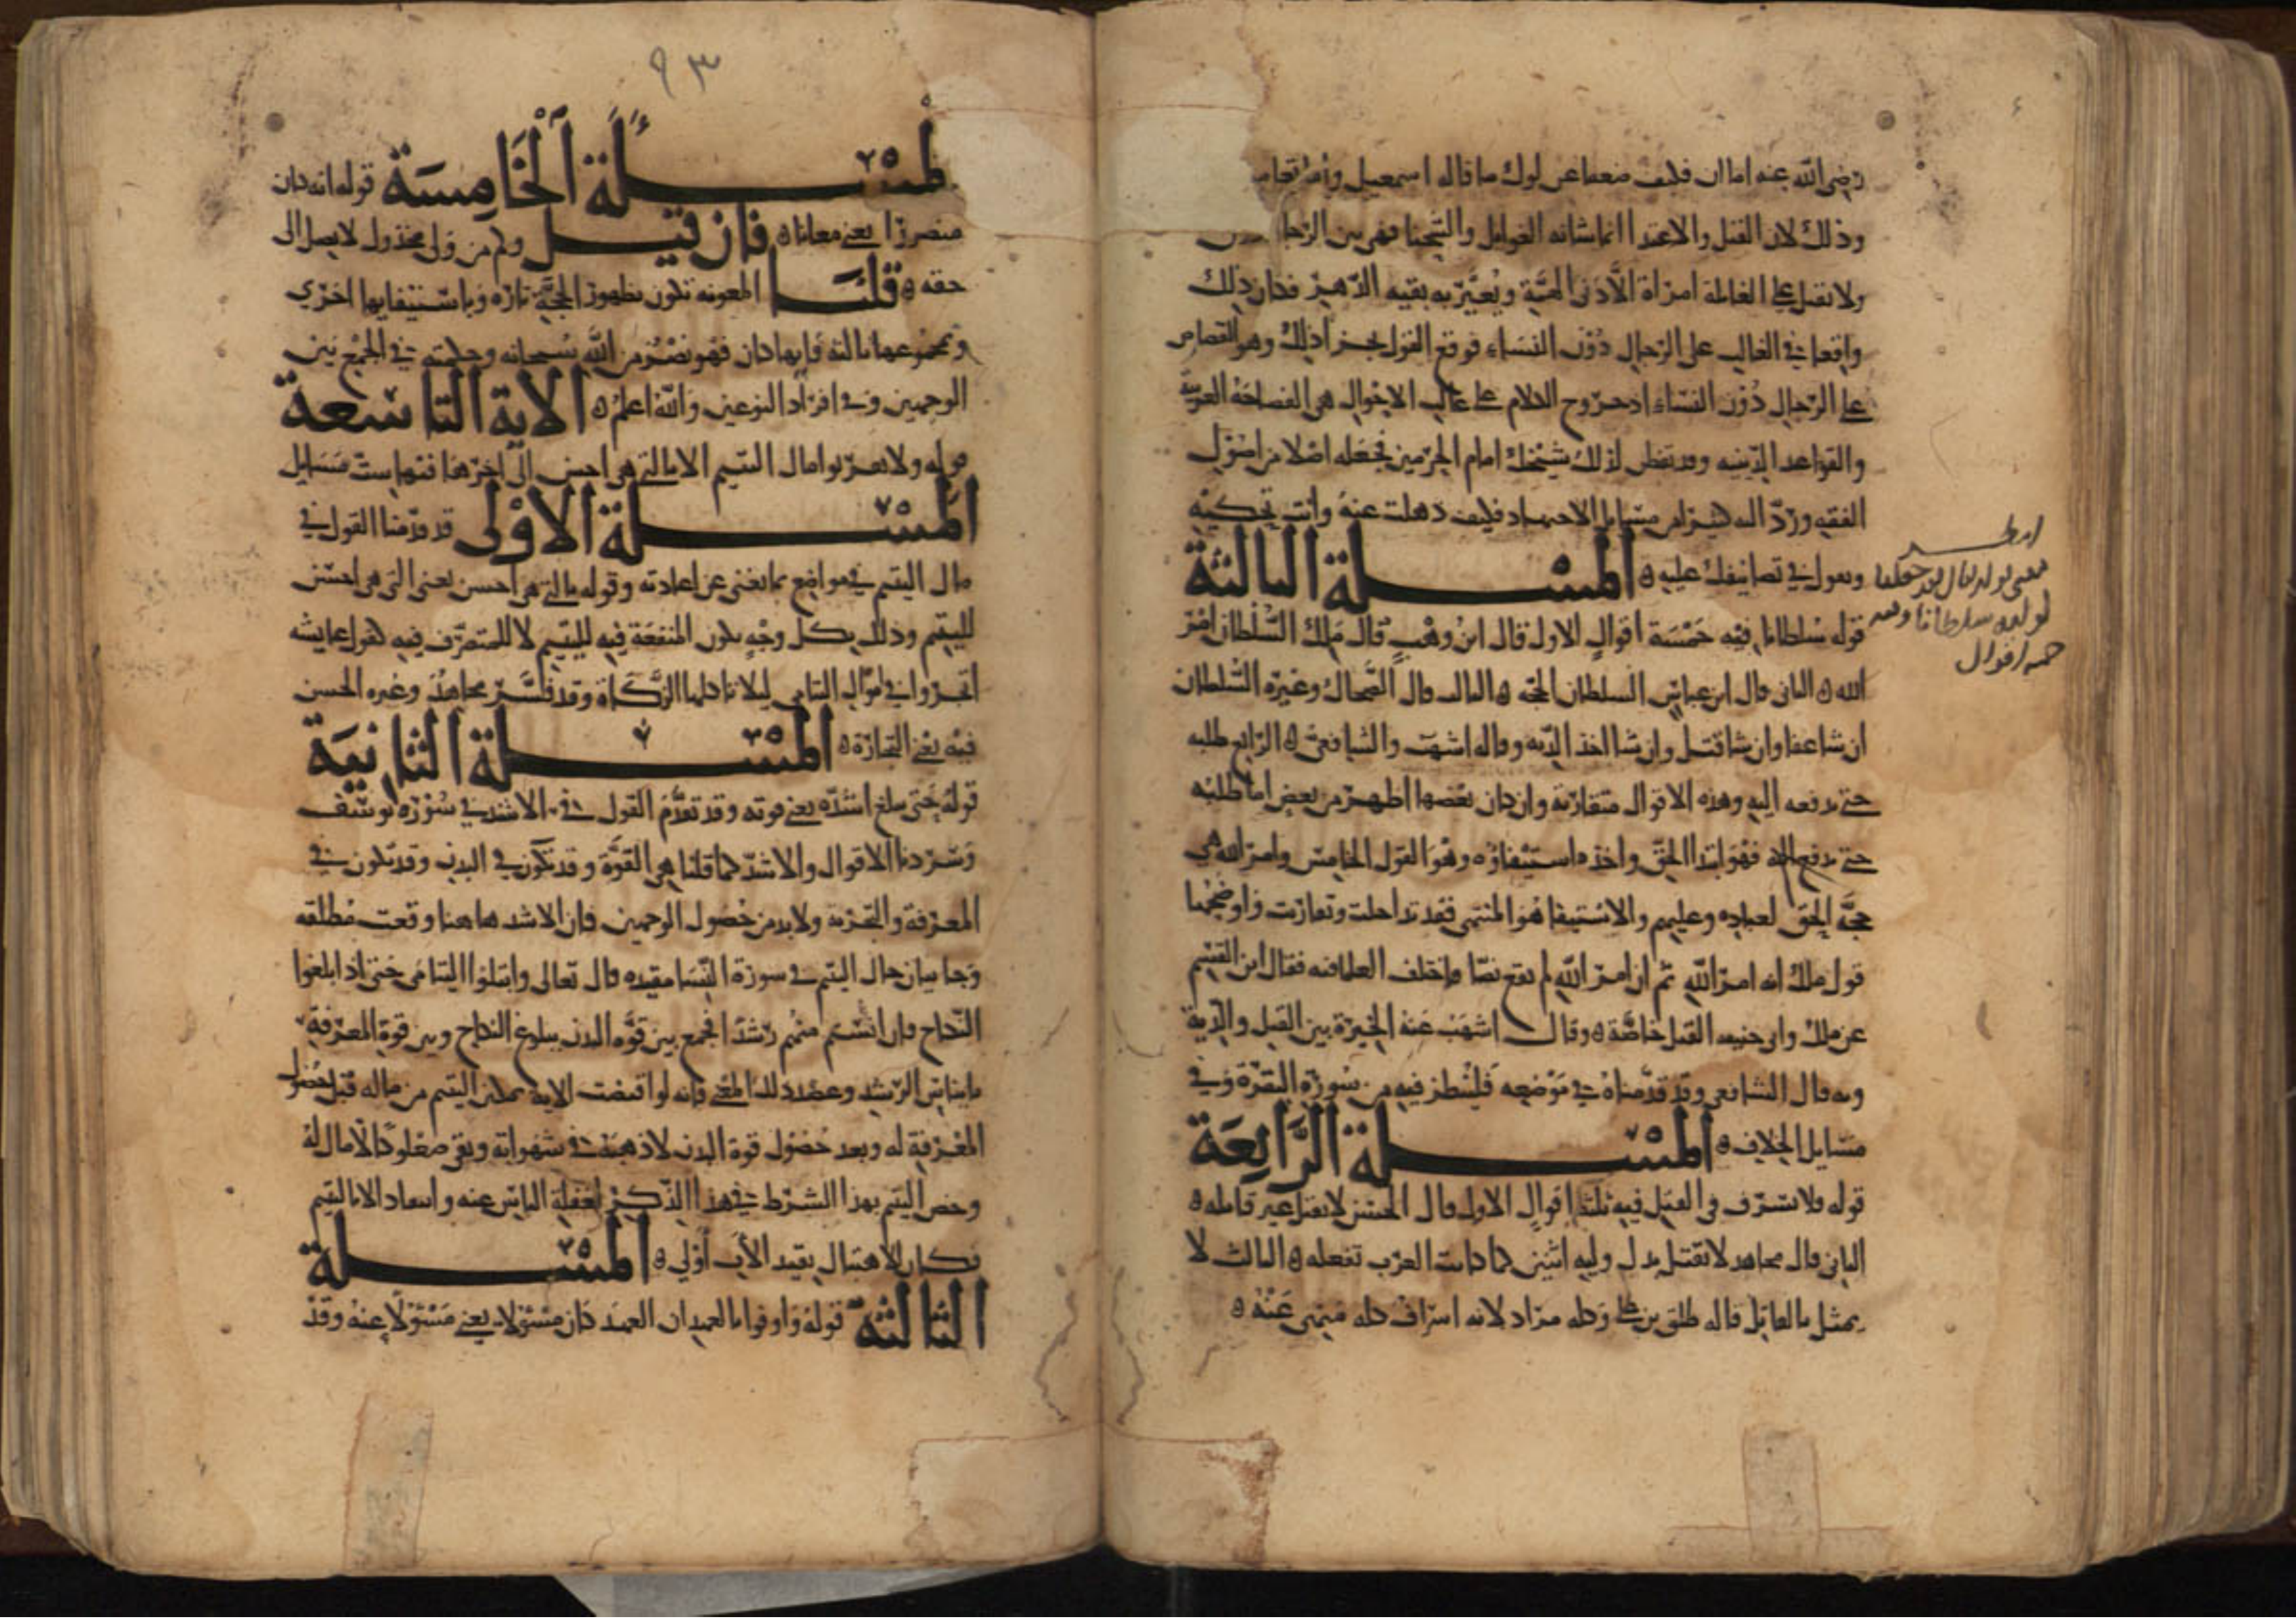 رضي الله عنه اما ان فكيف ضعفا عن لوك ما قاله اسمعيل
وذلك لان القتل والاعتدا انما شانه الغوايل والشحنا فهي بين الرجا
ولا تقبل على الغايلة امراة الا دني الهمة ويعير به بقيه الدهر فكان ذلك
واقعا في الغالب على الرجال دون النساء فوقع القول بجزا ذلك وهو القصاص
على الرجال دون النساء اذ خروج الكلام على غالب الاحوال هي الفصاحة العربية
والقواعد الدينيه وقد تفطن لذلك شيخك امام الحرمين فجعله اصلا من اصول
الفقه ورد اليه كثيرا من مسايل الاجتهاد فكيف ذهلت عنه وانت تحكيه
وتعول في تصانيفك عليه المسلة الثالثة
قوله سلطانا فيه خمسة اقوال الاول قال ابن وهب قال ملك السلطان امر
الله الثاني قال ابن عباس السلطان الحجه الثالث قال الضحاك وغيره السلطان
ان شا عفا وان شا قتل وان شا اخذ الديه وقاله اشهب والشافعي الرابع طلبه
حتى يدفعه اليه وهذه الاقوال متقاربة وان كان بعضها اظهر من بعض اما طلبه
حتى يدفع اليه فهو ابتدا الحق واخذه استيفاؤه وهو القول الخامس وامر الله هي
حجة الحق لعباده وعليهم والاستيفا هو المنتهى فقد تداخلت وتقاربت واوضحها
قول ملك انه امر الله ثم ان امر الله لم يقع نصا فاختلف العلما فيه فقال ابن القسم
عن ملك وابي حنيفه القتل خاصة وقال اشهب عنه الخيرة بين القتل والدية
وبه قال الشافعي وقد قدمناه في موضعه فلينظر فيه من سورة البقرة وفي
مسايل الخلاف المسلة الرابعة
قوله فلا تسرف في القتل فيه ثلثة اقوال الاول قال الحسن لا تقتل غير قاتله
الثاني قال مجاهد لا تقتل بدل وليه اثنين كما كانت العرب تفعله الثالث لا
يمثل بالقاتل قاله طلق بن وكله مراد لانه اسراف كله منهي عنه
معنى قوله تعالى فقد جعلنا
لوليه سلطانا وفيه
خمسه اقوال
٩٣
لمسلة الخامسة قوله انه كان
منصورا يعني معانا فان قيل وكم من ولي مخذول لا يصل الى
حقه قلنا المعونه تكون بظهور الحجة تارة وباستيفايها اخرى
وبمجموعهما ثالثة فايها كان فهو نصر من الله سبحانه وحكمته في الجمع بين
الوجهين وفي افراد النوعين والله اعلم الاية التاسعة
قوله ولا تقربوا مال اليتيم الا بالتي هي احسن الى اخرها فيها ست مسايل
المسلة الاولى قد قدمنا القول في
مال اليتيم في مواضع بما يغني عن اعادته وقوله بالتي هي احسن يعني التي هي احسن
لليتيم وذلك بكل وجه تكون المنفعة فيه لليتيم لا للمتصرف فيه كقول عايشه
اتجروا في اموال اليتامى ليلا تاكلها الزكاة وقد فسر مجاهد وغيره الحسن
فيه يعني التجارة المسلة الثانية
قوله حتى يبلغ اشده يعني قوته وقد تقدم القول في الاشد في سورة يوسف
وسردنا الاقوال والاشد كما قلنا هي القوة وقد تكون في البدن وقد تكون في
المعرفة والتجربة ولا بد من حصول الوجهين فان الاشد هاهنا وقعت مطلقه
وجا بيان حال اليتيم في سورة النسا مقيده قال تعالى وابتلوا اليتامى حتى اذا بلغوا
النكاح فان انستم منهم رشدا فجمع بين قوة البدن ببلوغ النكاح وبين قوة المعرفة
بايناس الرشد وعضد ذلك المعنى فانه لو اقتضت الاية تمكن اليتيم من ماله قبل حصول
المعرفة له وبعد حصول قوة البدن لاذهبه في شهواته وبقي صعلوكا لا مال له
وخص اليتيم بهذا الشرط في هذا الذكر لغفلة الناس عنه وافتقاد الابا
فكان الاهتبال بفقيد الاب اولى المسلة
الثالثة قوله واوفوا بالعهد ان العهد كان مسؤلا يعني مسؤلا عنه وقد